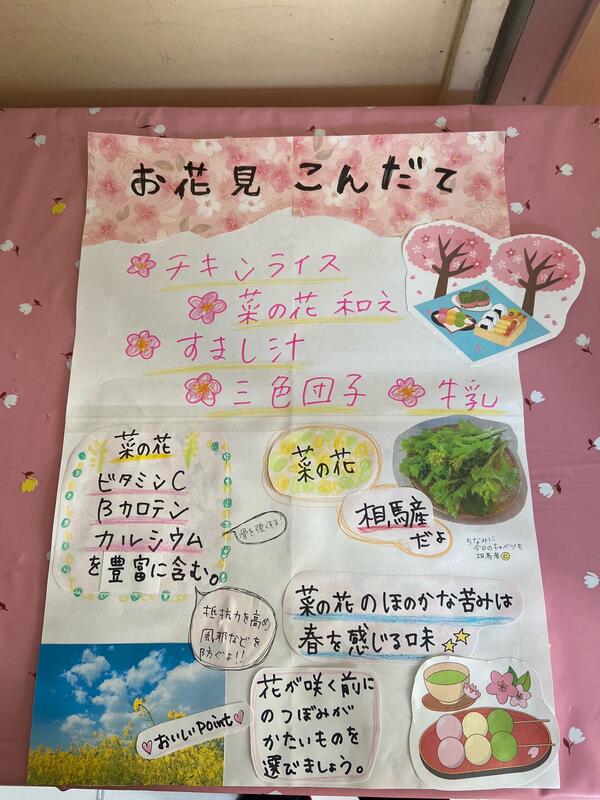 お花見 こんだて
チキンライス
菜の花 和え
すまし汁
三色団子 牛乳
菜の花
ビタミンC
βカロテン
カルシウム
を豊富に含む。
骨を強くする!
抵抗力を高め
風邪などを
防ぐよ!!
菜の花
相馬産
だよ
ちなみに
今日のキャベツも
相馬産
菜の花のほのかな苦みは
春を感じる味
おいしいpoint
花が咲く前に
のつぼみが
かたいものを
選びましょう。